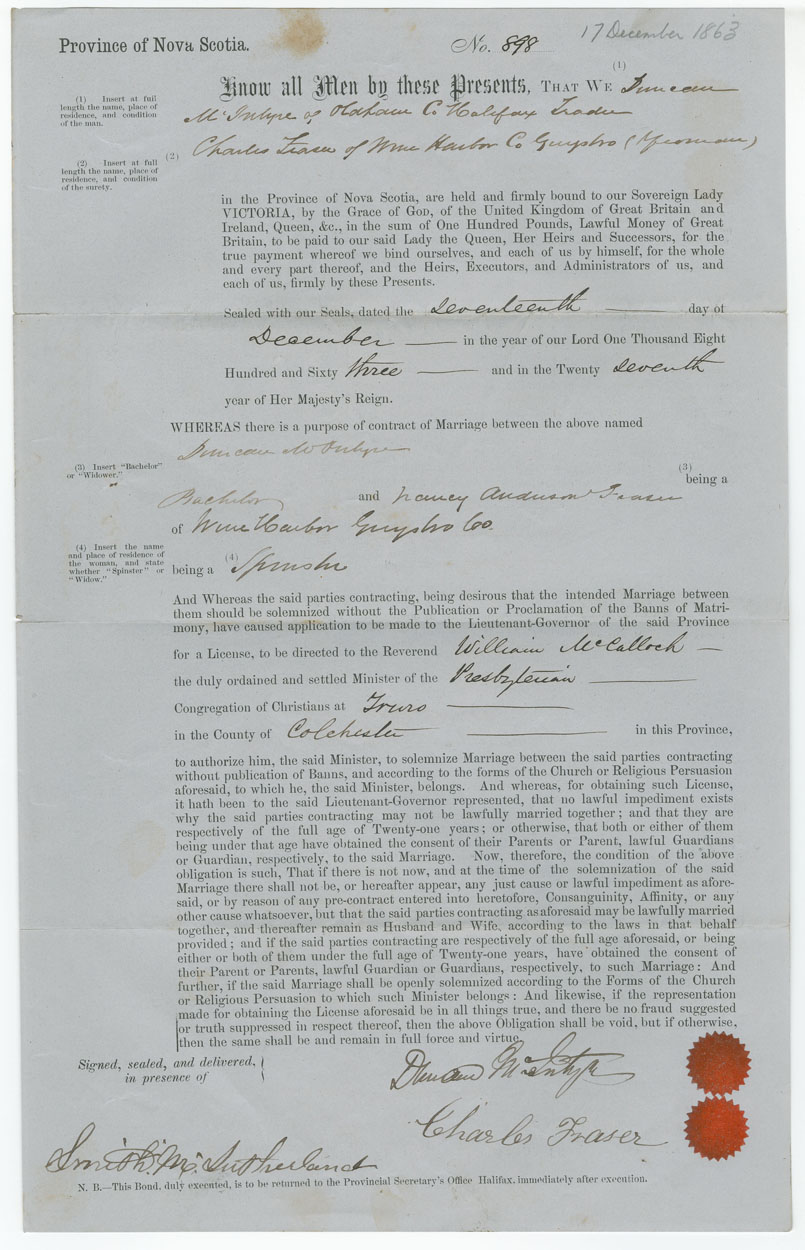 Province of Nova Scotia.
No. 898
17 December 1863
(1) Insert at full length the name, place of residence, and condition of the man.
Know all Men by these Presents, THAT WE (1) Duncan
McIntyre of Oldham Co Halifax Trader
(2) Insert at full length the name, place of residence, and condition of the surety.
(2) Charles Fraser of Wine Harbor Co Guysbro (Yeoman)
in the Province of Nova Scotia, are held and firmly bound to our Sovereign Lady
VICTORIA, by the Grace of GOD, of the United Kingdom of Great Britain and
Ireland, Queen, &c., in the sum of One Hundred Pounds, Lawful Money of Great
Britain, to be paid to our said Lady the Queen, Her Heirs and Successors, for the
true payment whereof we bind ourselves, and each of us by himself, for the whole
and every part thereof, and the Heirs, Executors, and Administrators of us, and
each of us, firmly by these Presents.
Sealed with our Seals, dated the Seventeenth day of
December in the year of our Lord One Thousand Eight
Hundred and Sixty three and in the Twenty Seventh
year of Her Majesty's Reign.
WHEREAS there is a purpose of contract of Marriage between the above named
Duncan McIntyre
(3) Insert "Bachelor" or "Widower."
(3) being a
Bachelor and Nancy Anderson Fraser
of Wine Harbor Guysbro Co.
(4) Insert the name and place of residence of the woman, and state whether "Spinster" or "Widow."
being a (4) Spinster
And Whereas the said parties contracting, being desirous that the intended Marriage between
them should be solemnized without the Publication or Proclamation of the Banns of Matri-
mony, have caused application to be made to the Lieutenant-Governor of the said Province
for a License, to be directed to the Reverend William McCulloch
the duly ordained and settled Minister of the Presbyterian
Congregation of Christians at Truro
in the County of Colchester in this Province,
to authorize him, the said Minister, to solemnize Marriage between the said parties contracting
without publication of Banns, and according to the forms of the Church or Religious Persuasion
aforesaid, to which he, the said Minister, belongs. And whereas, for obtaining such License,
it hath been to the said Lieutenant-Governor represented, that no lawful impediment exists
why the said parties contracting may not be lawfully married together; and that they are
respectively of the full age of Twenty-one years; or otherwise, that both or either of them
being under that age have obtained the consent of their Parents or Parent, lawful Guardians
or Guardian, respectively, to the said Marriage. Now, therefore, the condition of the above
obligation is such, That if there is not now, and at the time of the solemnization of the said
Marriage there shall not be, or hereafter appear, any just cause or lawful impediment as afore-
said, or by reason of any pre-contract entered into heretofore, Consanguinity, Affinity, or any
other cause whatsoever, but that the said parties contracting as aforesaid may be lawfully married
together, and thereafter remain as Husband and Wife, according to the laws in that behalf
provided; and if the said parties contracting are respectively of the full age aforesaid, or being
either or both of them under the full age of Twenty-one years, have obtained the consent of
their Parent or Parents, lawful Guardian or Guardians, respectively, to such Marriage: And
further, if the said Marriage shall be openly solemnized according to the Forms of the Church
or Religious Persuasion to which such Minister belongs: And likewise, if the representation
made for obtaining the License aforesaid be in all things true, and there be no fraud suggested
or truth suppressed in respect thereof, then the above Obligation shall be void, but if otherwise,
then the same shall be and remain in full force and virtue.
Signed, sealed, and delivered,
in presence of
Duncan McIntyre
Charles Fraser
Smith McSutherland
N. B.—This Bond, duly executed, is to be returned to the Provincial Secretary's Office Halifax, immediately after execution.